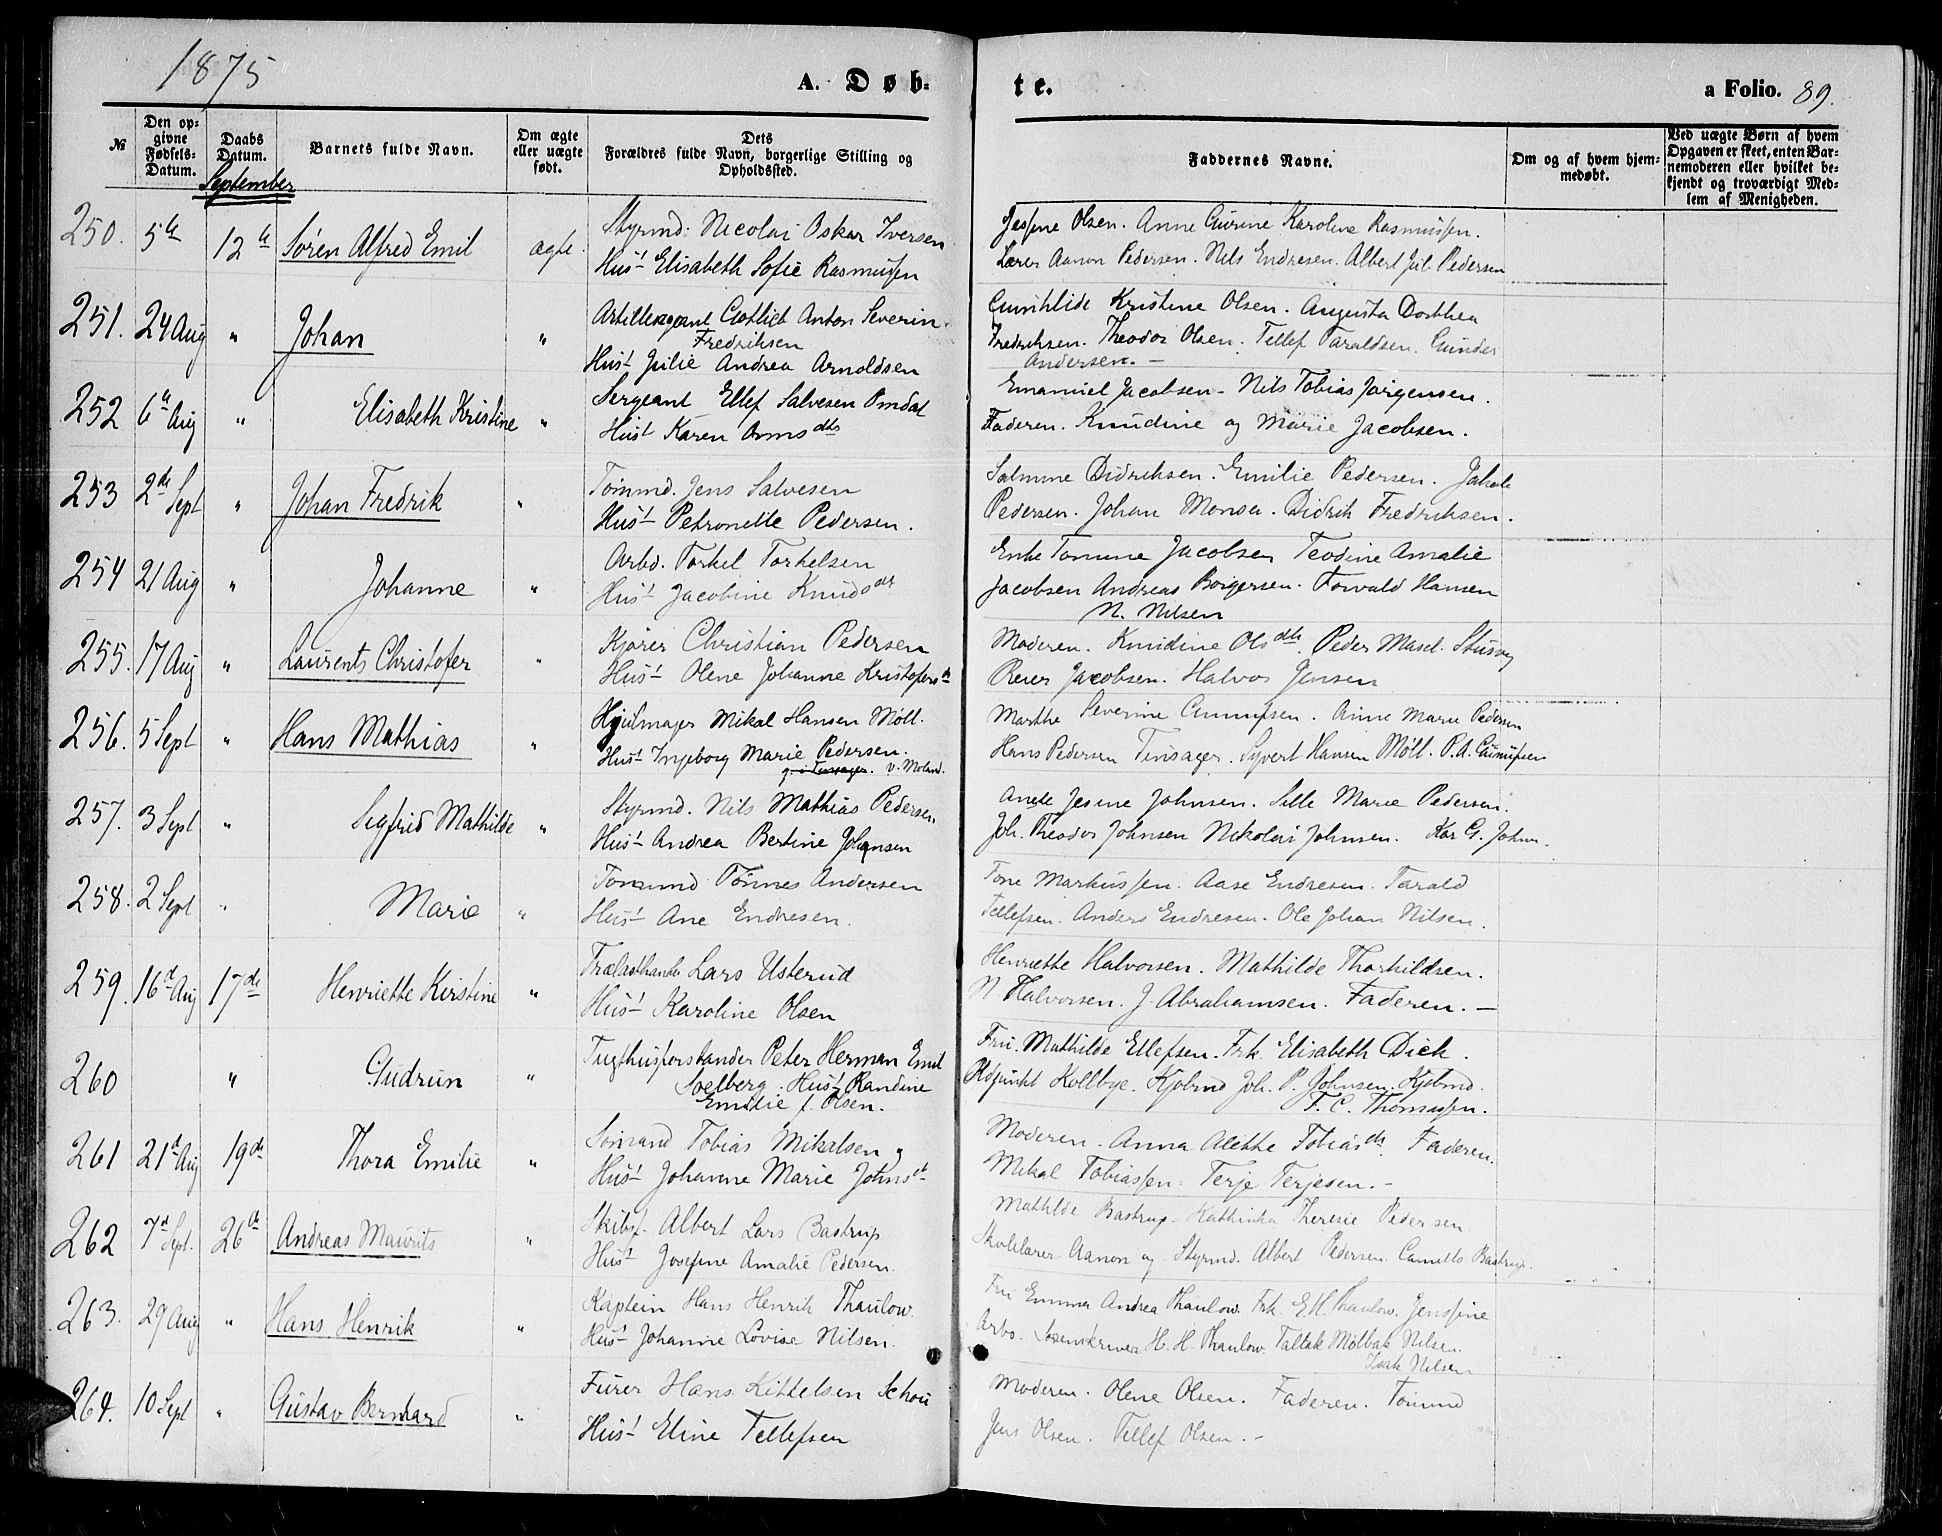 1875
A. Døb-
te.
a Folio. 89.
№
Den opgivne Fødsels-Datum.
Daabs Datum.
Barnets fulde Navn.
Om ægte eller uægte født.
Dets Forældres fulde Navn, borgerlige Stilling og Opholdssted.
Faddernes Navne.
Om og af hvem hjemmedøbt.
Ved uægte Børn af hvem Opgaven er skeet, enten Barnemoderen eller hvilket bekjendt og troværdigt Medlem af Menigheden.
September
250. 5te 12te Søren Alfred Emil ægte. Styrmd. Nicolai Oskar Iversen
Hust Elisabeth Sofie Rasmussen
Jossine Olsen. Anne Gurine Karoline Rasmussen.
Lærer Aanon Pedersen. Nils Endresen. Albert Jul. Pedersen
251. 24 Aug " Johan " Gotlieb Anton Severin
Fredriksen
Hust Julie Andrea Arnoldsen
Gunhilde Kristine Olsen. Augusta Dorthea
Fredriksen. Theodor Olsen. Tellef Taraldsen. Gunder
Andersen. -
252 6te Aug " Elisabeth Kristine " Sergeant Ellef Salvesen Omdal
Hust Karen Arnsdtr
Emanuel Jacobsen - Nils Tobias Jørgensen.
Faderen. Knudine og Marie Jacobsen.
253 2de Sept " Johan Fredrik " Tømmd. Jens Salvesen
Hust Petronelle Pedersen.
Salmine Didriksen. Emilie Pedersen. Jakob
Pedersen. Johan Monsen. Didrik Fredriksen.
254 21 Aug " Johanne " Arbd. Torkel Torkelsen
Hust Jacobine Knudsdt
Enke Tomine Jacobsen Teodine Amalie
Jacobsen Andreas Borgersen. Torvald Hansen
N. Nilsen
255. 17 Aug " Laurents Christofer " Kjører Christian Pedersen
Hust Olene Johanne Kristofersdt
Moderen. Knudine Olsdtr. Peder Mael.
Reier Jacobsen. Halvor Jensen
256. 5 Sept " Hans Mathias " Hjulmager Mikal Hansen Møll.
Hust Ingeborg Marie Pedersen.
v. Moland.
Marthe Severine Gunnufsen. Anne Marie Pedersen
Hans Pedersen Tinsager. Syvert Hansen Møll. P. A. Gunnufsen
257. 3 Sept " Segfrid Mathilde " Styrmd. Nils Mathias Pedersen
Hust Andrea Bertine Johansen
Anete Jesine Johnsen. Sille Marie Pedersen.
Joh. Theodor Johnsen Nikolai Johnsen. Kar G. Johns.
258. 2 Sept " Marie " Tomund Tønnes Andersen
Hust Ane Endresen.
Tone Markussen. Aase Endresen. Tarald
Tellefsen. Anders Endresen. Ole Johan Nilsen.
259. 16d Aug 17de Henriette Kirstine " Trælasthandler Lars Usterud
Hust Karoline Olsen
Henriette Halvorsen. Mathilde Thorkildsen.
N Halvorsen. J. Abrahamsen. Faderen. -
260 " Gudrun " Tugthusforstander Peter Herman Emil
Soelberg. Hust Randine
Emilie f. Olsen.
Fru. Mathilde Ellefsen. Frk. Elisabeth Dick.
Adjunkt Kollbye. Kjøbmd Joh. P. Johnsen. Kjøbmd.
F. C. Thomassen.
261 21d Aug 19de Thora Emilie " Sømand Tobias Mikalsen
Hust Johanne Marie Johnsdt
Moderen. Anna Alekke Tobiasdtr. Faderen.
Mikal Tobiassen. Terje Terjesen. -
262 7d Sept. 26de Andreas Mauritz " Skibsf. Albert Lars Bastrup
Hust Josefine Amalie Pedersen.
Mathilde Bastrup. Kathinka Theresie Pedersen.
Skolelærer Aanon og Styrmd. Albert Pedersen. Camillo Bastrup.
263. 29 Aug " Hans Henrik " Kaptein Hans Henrik Thaulow.
Hust Johanne Lovise Nilsen.
Fru Emma Andrea Thaulow. Frk. E. H. Thaulow. Jensine
Arbo. Sorenskriver H. H. Thaulow. Møllbak Nilsen.
Isak Nilsen
264. 10 Sept " Gustav Bernhard " Furer Hans Kittelsen Schou
Hust Eline Tellefsen
Moderen. Olene Olsen. Faderen. Tømmd
Jens Olsen. Tellef Olsen. -